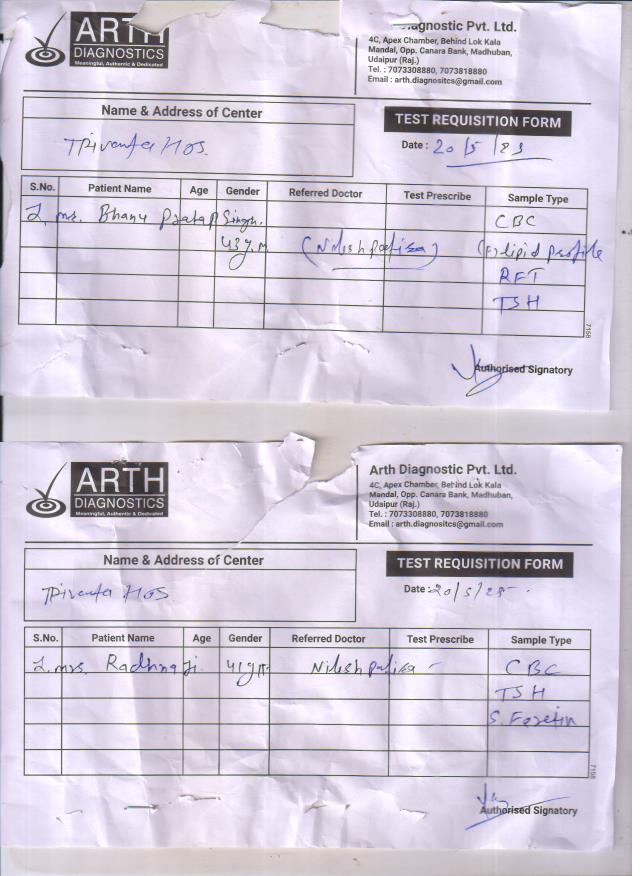 ARTH
DIAGNOSTICS
Meaningful, Authentic & Dedicated
iagnostic Pvt. Ltd.
4C, Apex Chamber, Behind Lok Kala
Mandal, Opp. Canara Bank, Madhuban,
Udaipur (Raj.)
Tel. : 7073308880, 7073818880
Email : arth.diagnositcs@gmail.com
Name & Address of Center
TEST REQUISITION FORM
Hos.
Date : 20/5/23
S.No. Patient Name Age Gender Referred Doctor Test Prescribe Sample Type
1. mr. Bhanu Pratap Singh. CBC
43 y.m (Nilesh patisa) (F) lipid profile
RFT
TSH
7158
Authorised Signatory
ARTH
DIAGNOSTICS
Meaningful, Authentic & Dedicated
Arth Diagnostic Pvt. Ltd.
4C, Apex Chamber, Behind Lok Kala
Mandal, Opp. Canara Bank, Madhuban,
Udaipur (Raj.)
Tel. : 7073308880, 7073818880
Email : arth.diagnositcs@gmail.com
Name & Address of Center
TEST REQUISITION FORM
Hos
Date : 20/5/
S.No. Patient Name Age Gender Referred Doctor Test Prescribe Sample Type
1. mrs. Radhna Ji. 41 y Nilesh patisa - CBC
TSH
S.
7158
Authorised Signatory